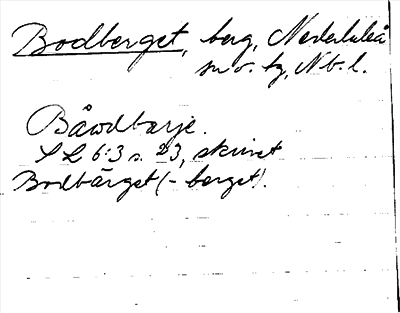 Bodberget, berg, Nederluleå
sn o. tg, Nb. l.
Båwdbarje.
SL 6:3 s. 23, skrivet
Bodbärget (- berget).